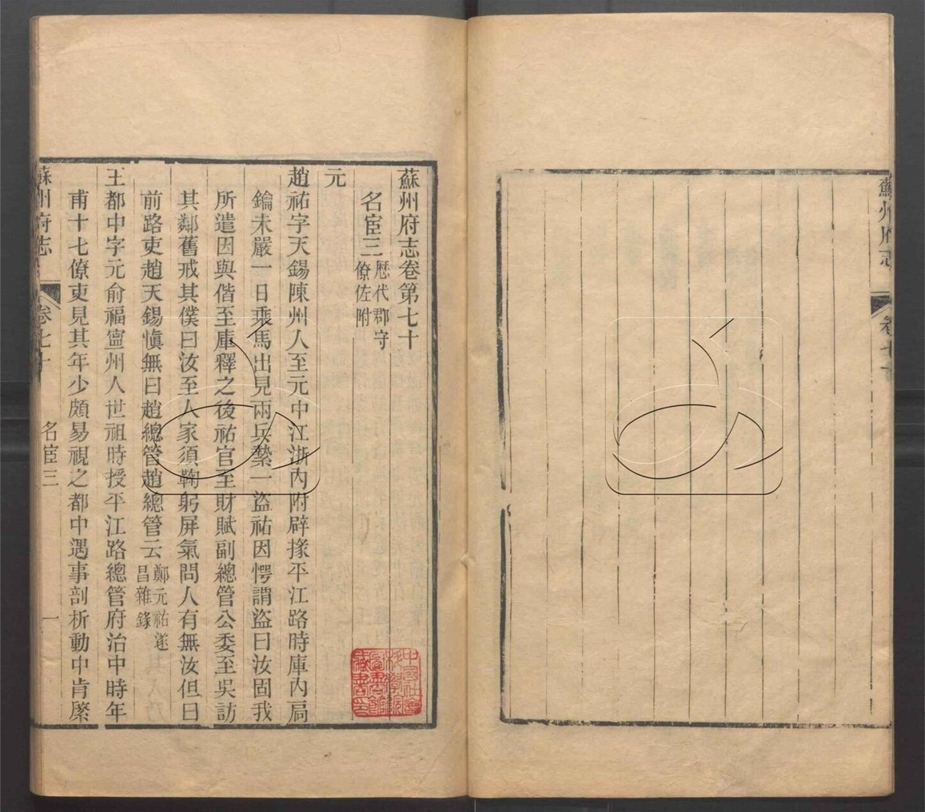 蘇州府志
卷七十
蘇州府志卷第七十
名宦三歷代郡守僚佐附
元
趙祐字天錫陳州人至元中江浙內附辟掾平江路時庫內局
鑰未嚴一日乘馬出見兩兵縶一盜祐因愕謂盜曰汝固我
所遣因與偕至庫釋之後祐官至財賦副總管公委至吳訪
其鄰舊戒其僕曰汝至人家須鞠躬屏氣問人有無汝但曰
前路吏趙天錫愼無曰趙總管趙總管云鄭元祐遂昌雜錄
王都中字元俞福寧州人世祖時授平江路總管府治中時年
甫十七僚吏見其年少頗易視之都中遇事剖析動中肯綮
蘇州府志
卷七十
名宦三
一